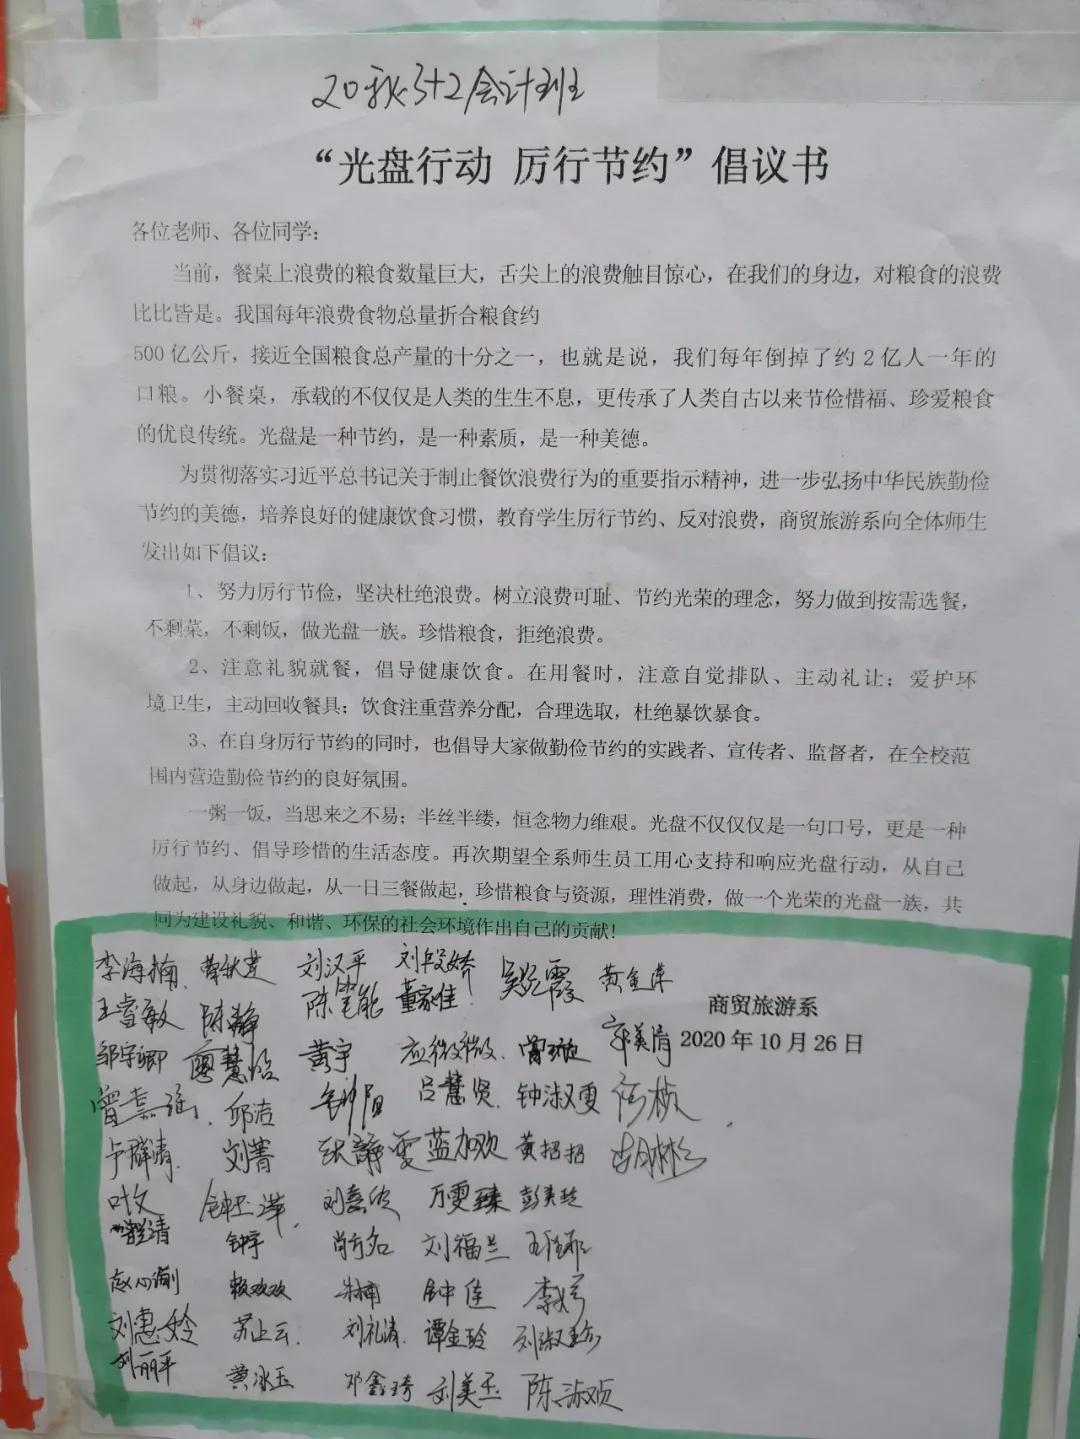 20秋3+2会计班
“光盘行动 厉行节约”倡议书
各位老师、各位同学:
当前，餐桌上浪费的粮食数量巨大，舌尖上的浪费触目惊心，在我们的身边，对粮食的浪费
比比皆是。我国每年浪费食物总量折合粮食约
500亿公斤，接近全国粮食总产量的十分之一，也就是说，我们每年倒掉了约2亿人一年的
口粮。小餐桌，承载的不仅仅是人类的生生不息，更传承了人类自古以来节俭惜福、珍爱粮食
的优良传统。光盘是一种节约，是一种素质，是一种美德。
为贯彻落实习近平总书记关于制止餐饮浪费行为的重要指示精神，进一步弘扬中华民族勤俭
节约的美德，培养良好的健康饮食习惯，教育学生厉行节约、反对浪费，商贸旅游系向全体师生
发出如下倡议:
1、努力厉行节俭，坚决杜绝浪费。树立浪费可耻、节约光荣的理念，努力做到按需选餐，
不剩菜，不剩饭，做光盘一族。珍惜粮食，拒绝浪费。
2、注意礼貌就餐，倡导健康饮食。在用餐时，注意自觉排队、主动礼让；爱护环
境卫生，主动回收餐具；饮食注重营养分配，合理选取，杜绝暴饮暴食。
3、在自身厉行节约的同时，也倡导大家做勤俭节约的实践者、宣传者、监督者，在全校范
围内营造勤俭节约的良好氛围。
一粥一饭，当思来之不易；半丝半缕，恒念物力维艰。光盘不仅仅仅是一句口号，更是一种
厉行节约、倡导珍惜的生活态度。再次期望全系师生员工用心支持和响应光盘行动，从自己
做起，从身边做起，从一日三餐做起，珍惜粮食与资源，理性消费，做一个光荣的光盘一族，共
同为建设礼貌、和谐、环保的社会环境作出自己的贡献!
李海楠 刘汉平 刘段娇 黄金萍
陈静 董家佳
商贸旅游系
邹宇卿 廖慧怡 黄宇 应微微 曾璇 郭美清
2020年10月26日
邱洁 钟阳 吕慧贤 钟淑雯
卢群清 刘菁 张静雯 蓝加欢 黄招招 胡彬彬
叶文 钟玉萍 刘嘉欣 万雯臻 彭美玲
钟宇 肖方名 刘福兰
赖欢欢 朱楠 钟佳 李婷
刘惠玲 苏上云 刘礼清 谭金玲 刘淑珍
刘丽平 黄冰玉 邓鑫琦 刘美玉 陈淑贞